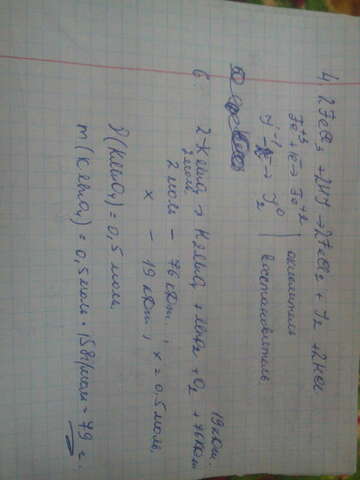 4. 2FeCl3 + 2HJ → 2FeCl2 + J2 + 2HCl
Fe+3 + ē → Fe+2 | окислитель
J-1 - ē → J2 0 | восстановитель
19 кДж.
6. 2KMnO4 → K2MnO4 + MnO2 + O2 + 76 кДж
2 моль
2 моль - 76 кДж ;
x - 19 кДж ; x = 0,5 моль.
ν(KMnO4) = 0,5 моль.
m(KMnO4) = 0,5 моль · 158 г/моль = 79 г.